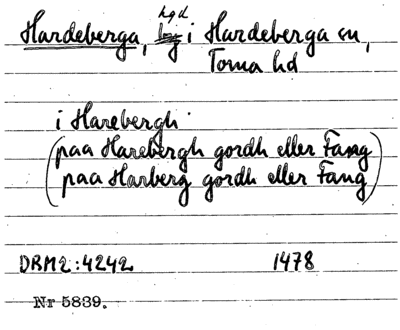 hgd
Hardeberga, by i Hardeberga sn,
Torna hd
i Harebergh
(paa Harebergh gordh eller Fang
paa Harberg gordh eller Fang)
DRM2:4242 1478
Nr 5839.